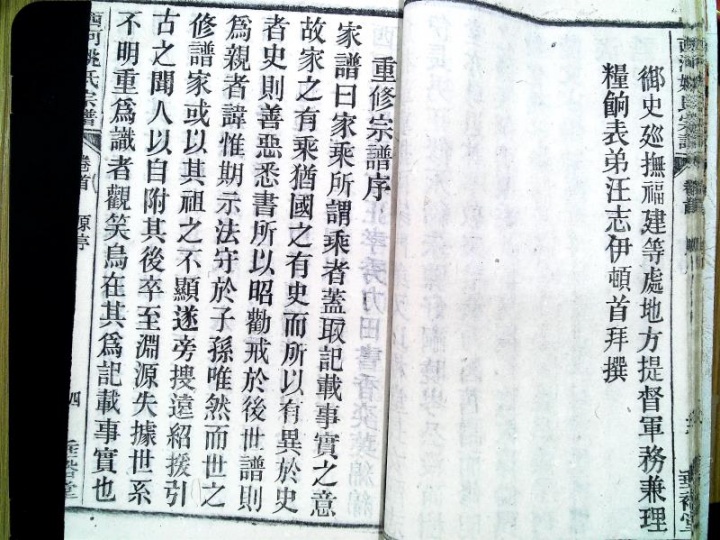 御史廵撫福建等處地方提督軍務兼理
糧餉表弟汪志伊頓首拜撰
重修宗譜序
家譜曰家乘所謂乘者蓋取記載事實之意
故家之有乘猶國之有史而所以有異於史
者史則善惡悉書所以昭勸戒於後世譜則
爲親者諱惟期示法守於子孫唯然而世之
修譜家或以其祖之不顯遂旁搜遠紹援引
古之聞人以自附其後卒至淵源失據世系
不明重爲識者觀笑烏在其爲記載事實也
西河姚氏宗譜 卷首 原序 四